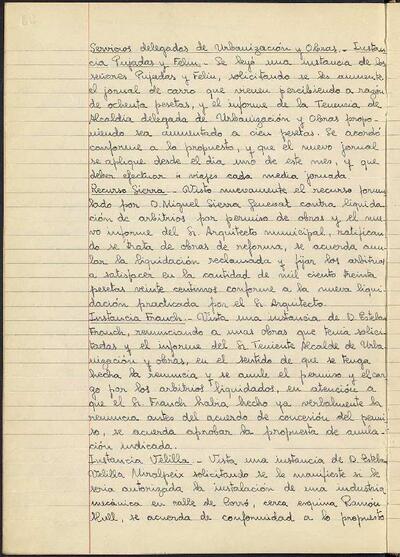 Servicios delegados de Urbanización y Obras.- Instan
cia Pujadas y Feliu.- Se leyó una instancia de los
señores Pujadas y Feliu, solicitando se les aumente
el jornal de carro que vienen percibiendo a razón
de ochenta pesetas, y el informe de la Tenencia de
Alcaldía delegada de Urbanización y Obras propo-
niendo sea aumentado a cien pesetas. Se acordó
conforme a lo propuesto, y que el nuevo jornal
se aplique desde el día uno de este mes, y que
deber efectuar viajes cada media jornada
Recurso Sierra.- Visto nuevamente el recurso formu
lado por D. Miguel Sierra contra liquida-
ción de arbitrios por permiso de obras y el nue
vo informe del Sr. Arquitecto municipal, ratifican-
do se trata de obras de reforma, se acuerda anu-
lar la liquidación reclamada y fijar los arbitrios
a satisfacer en la cantidad de mil ciento treinta
pesetas veinte centimos conforme a la nueva liqui-
dación practicada por el Sr. Arquitecto.
Instancia Franch.- Vista una instancia de D. Esteban
Franch, renunciando a unas obras que tenía solici-
tadas y el informe del Sr. Teniente Alcalde de Urba-
nización y obras, en el sentido de que se tenga
hecha la renuncia y se anule el permiso y el car-
go por los arbitrios liquidados, en atención a
que el Sr. Franch había hecho ya verbalmente la
renuncia antes del acuerdo de concesión del permi-
so, se acuerda aprobar la propuesta de anula-
ción indicada.
Instancia Velilla.- Vista una instancia de D. Esteban
Velilla solicitando se le manifieste si le
sería autorizada la instalación de una industria
mecánica en calle de Corró, cerca esquina Ramón
Llull, se acuerda de conformidad a lo propuesto